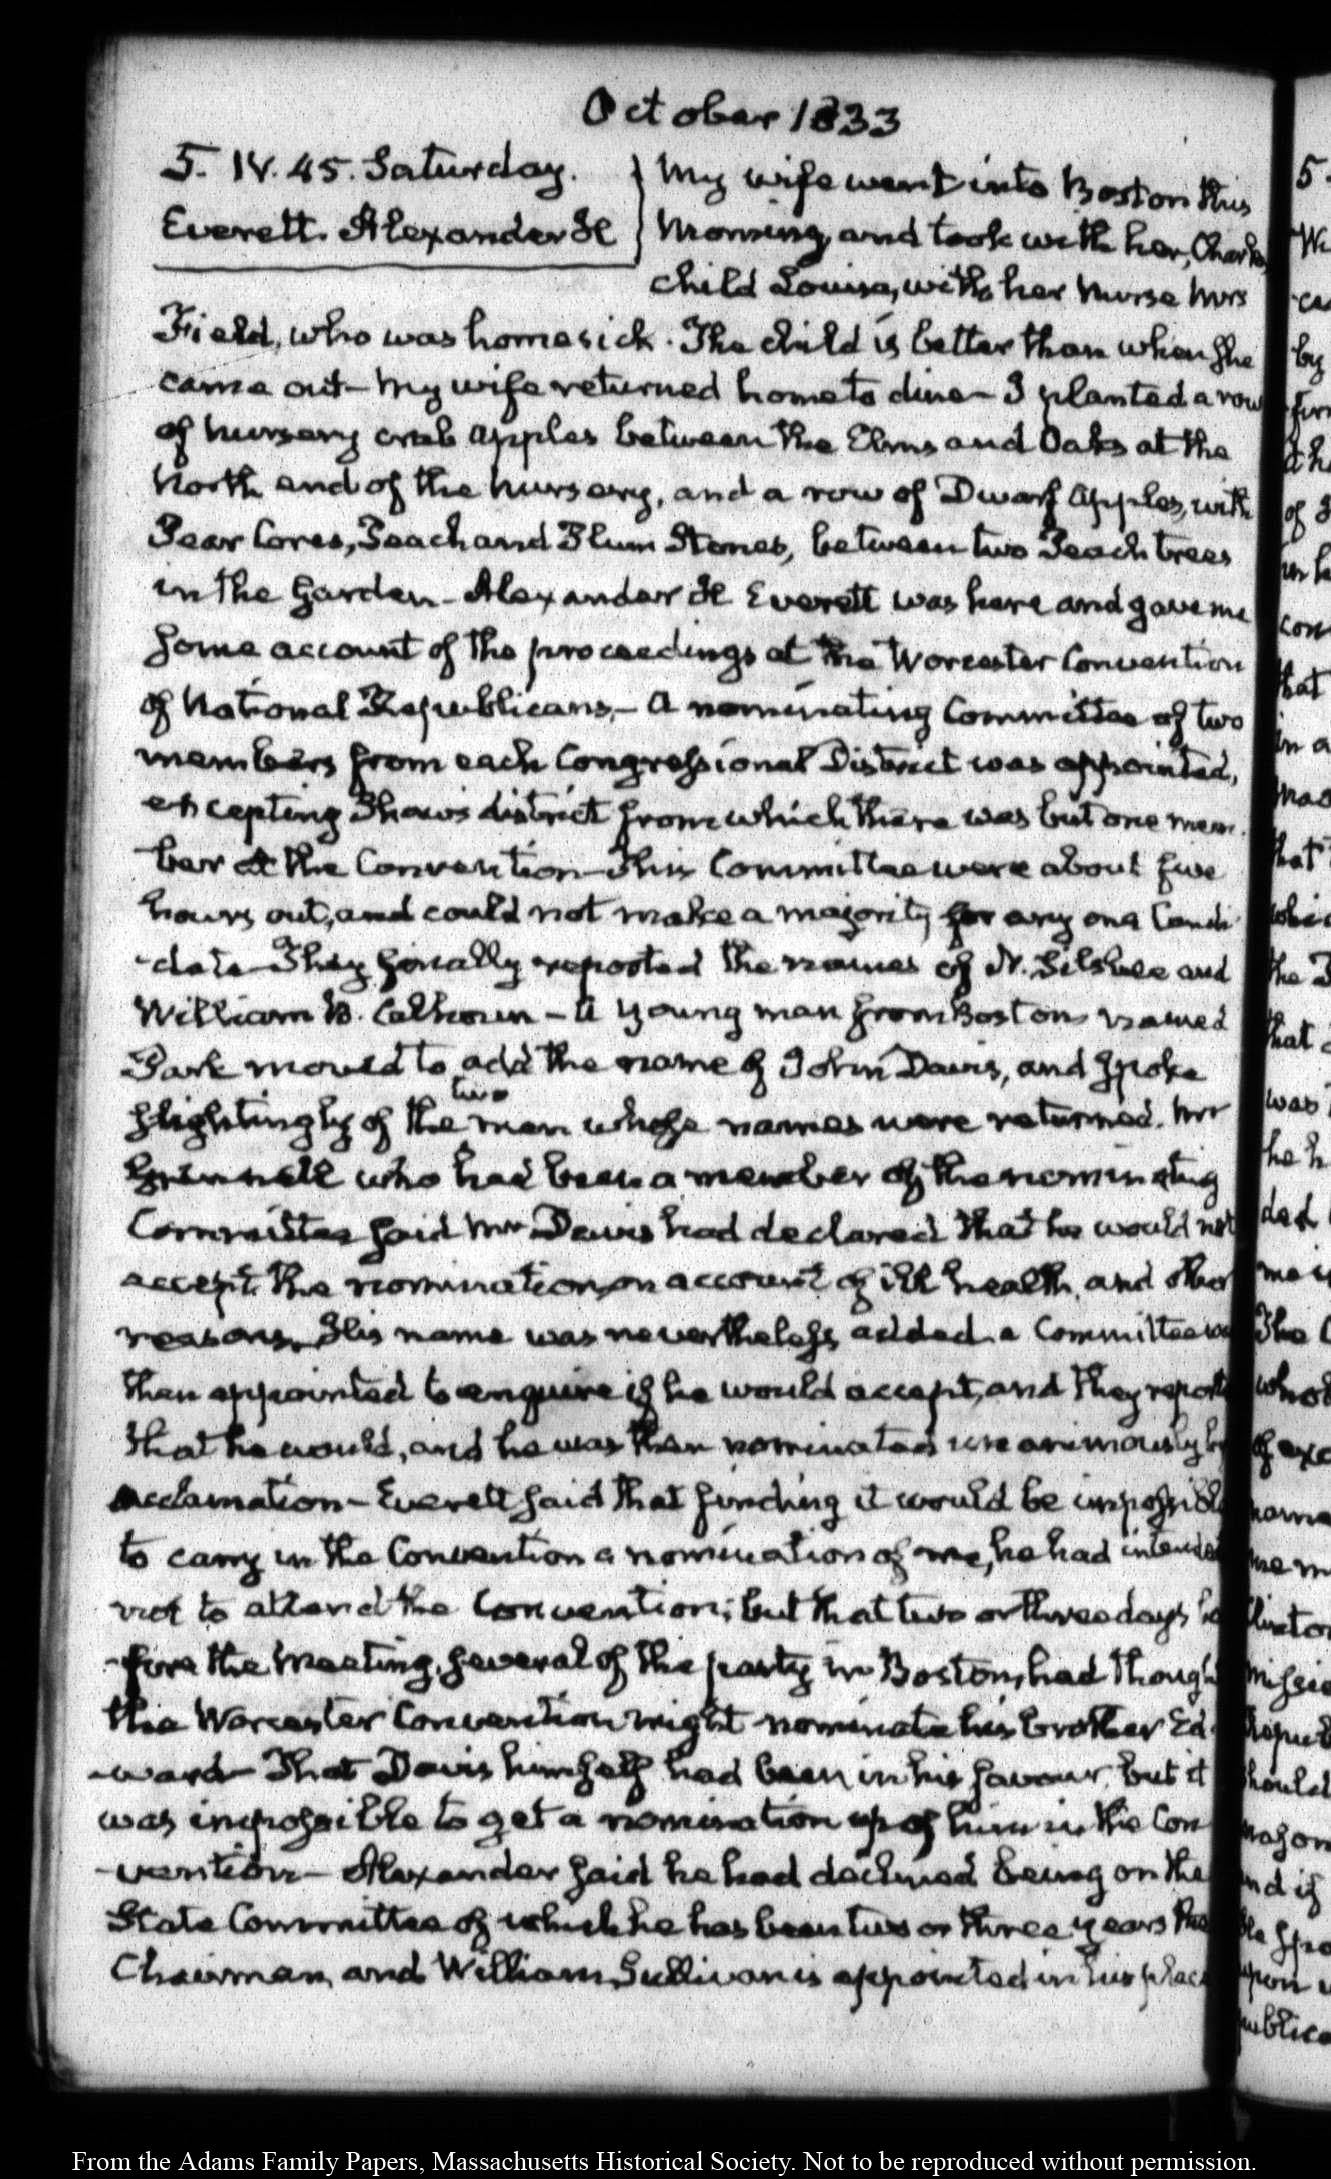 October 1833
5. IV. 45. Saturday.
Everett. Alexander H
My wife went into Boston this
morning, and took with her, Charles's
child Louisa, with her nurse Mrs
Field, who was homesick. The child is better than when she
came out— My wife returned home to dine— I planted a row
of nursery crab apples between the Elms and Oaks at the
North end of the nursery, and a row of Dwarf apples, with
Pear Cores, Peach and Plum Stones, between two Peach trees
in the Garden— Alexander H Everett was here and gave me
some account of the proceedings at the Worcester Convention
of National Republicans,— A nominating Committee of two
members from each Congressional District was appointed,
excepting Shaw's district from which there was but one mem-
ber at the Convention— This Committee were about five
hours out, and could not make a majority for any one Candi-
-date— They finally reported the names of N. Silsbee and
William B. Calhoun— A young man from Boston named
Park moved to add the name of John Davis, and spoke
slightingly of the two men whose names were returned. Mr
Grinnell who had been a member of the nominating
Committee said Mr Davis had declared that he would not
accept the nomination on account of ill health, and other
reasons. His name was nevertheless added. a Committee was
then appointed to enquire if he would accept, and they reported
that he would, and he was then nominated unanimously by
acclamation— Everett said that finding it would be impossible
to carry in the Convention a nomination of me, he had intended
not to attend the Convention; but that two or three days be
-fore the meeting, several of the party in Boston, had thought
the Worcester Convention might nominate his brother Ed-
-ward— That Davis himself had been in his favour, but it
was impossible to get a nomination of him in the Con
-vention— Alexander said he had declined being on the
State Committee of which he has been two or three years the
Chairman, and William Sullivan is appointed in his place
From the Adams Family Papers, Massachusetts Historical Society. Not to be reproduced without permission.